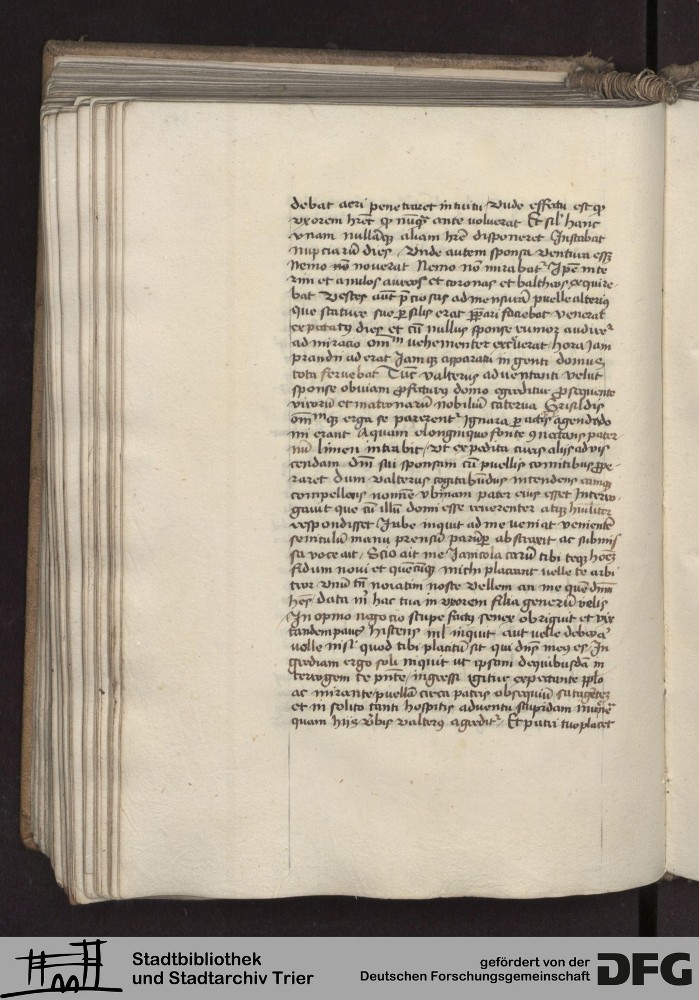 debat acri penetraret intuitu Unde effectu est qͦ
vxorem hr̄et qͣ nūqͣ ante voluerat Et sil' hanc
vnam nullāqꝫ aliam hr̄e disponeret Instabat
nupciarū dies / Unde autem sponsa ventura esset
Nemo nō noverat Nemo nō mirabatᷣ Ip̄e inte
rim et anulos aureos et coronas et baltheos exquire-
bat Vestes aūt p̄ciosas ad mensurā puelle alterius
Que stature sue ꝑsilis erat p̄pari faciebat Venerat
expectatꝰ dies et cū nullus sponse rumor audiretᷣ
admiracio om̄m vehementer excreverat hora Jam
prandii aderat Jamqꝫ apparatu ingenti domus
tota fervebat Tūc valterus adventanti velut
sponse obviam ꝓfecturꝰ domo egreditur ꝓsequente
virorū et matronarū nobiliū caterva Grisildis
om̄mqꝫ erga se pararentᷣ ignara ꝑactis agendis do
mi erant Aquam e longinquo fonte ꝯvectans pater
nū limen intrabit / vt expedita curis aliis ad vis
cendam dn̄i sui sponsam cū puellis comitibus ꝓpe-
raret Dum valterus cogitabūdus incedens eamqꝫ
compellans nomīe vbinam pater eius esset Interro-
gavit que cū illū domi esse reverenter atqꝫ hūiliter
respondisset Jube inquit ad me veniat venientē
seniculum manu prensū parūꝑ abstraxit ac submis
sa voce ait / Scio ait me / Janicola carū tibi teqꝫ hoīeꝫ
fidum novi et quecūqꝫ michi placeant velle te arbi
tror vnū tn̄ noīatim nosse vellem an me quē dn̄m
hēs data m̄ hac tua in vxorem filia generū velis
Inopino negocio stupefactꝰ senex obriguit et vix
tandem paucꝭ hiscens nil inquit aut velle debeo aᷣ
nolle nisi quod tibi placitū sit qui dn̄s meꝰ es / In
grediamᷣ ergo soli inquit ut ipsam de quibusdā in
terrogem te pn̄te / ingressi igitur expectante ppl̄o
ac mirante puellā circa patris obsequiū satagentē
et insolito tanti hospitis adventu stupidam invenē
quam hiis v̄bis valterꝰ agreditᷣ / Et patri tuo placet
Stadtbibliothek
und Stadtarchiv Trier
gefördert von der
Deutschen Forschungsgemeinschaft
DFG